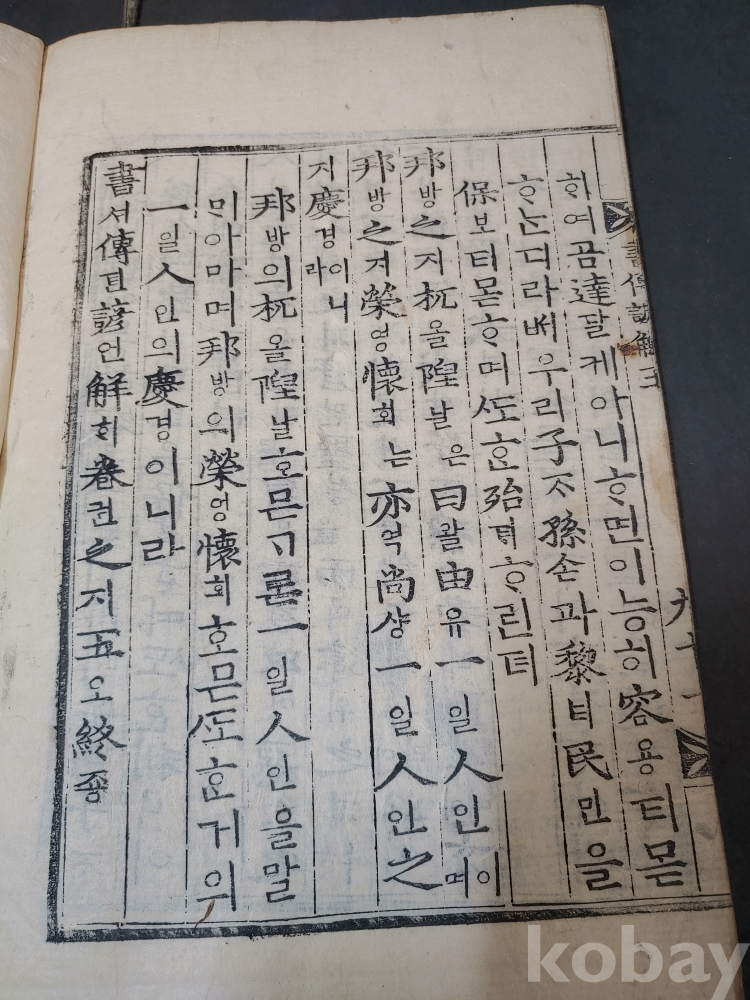 書傳諺解五
九十一
ᄒᆞ여곰達달케아니ᄒᆞ면이능히容용티몯
ᄒᆞᄂᆞᆫ디라ᄡᅥ우리子ᄌᆞ孫손과黎려民민을
保보티몯ᄒᆞ며ᄯᅩᄒᆞᆫ殆ᄐᆡᄒᆞ린뎌
邦방之지杌올隉날은曰왈由유一일人인이며
邦방之지榮영懷회는亦역尙샹一일人인之
지慶경이니라
邦방의杌올隉날호믄ᄀᆞ론一일人인을말
ᄆᆡ아마며邦방의榮영懷회호믄ᄯᅩᄒᆞᆫ거의
一일人인의慶경이니라
書셔傳뎐諺언解ᄒᆡ卷권之지五오終죵
kobay